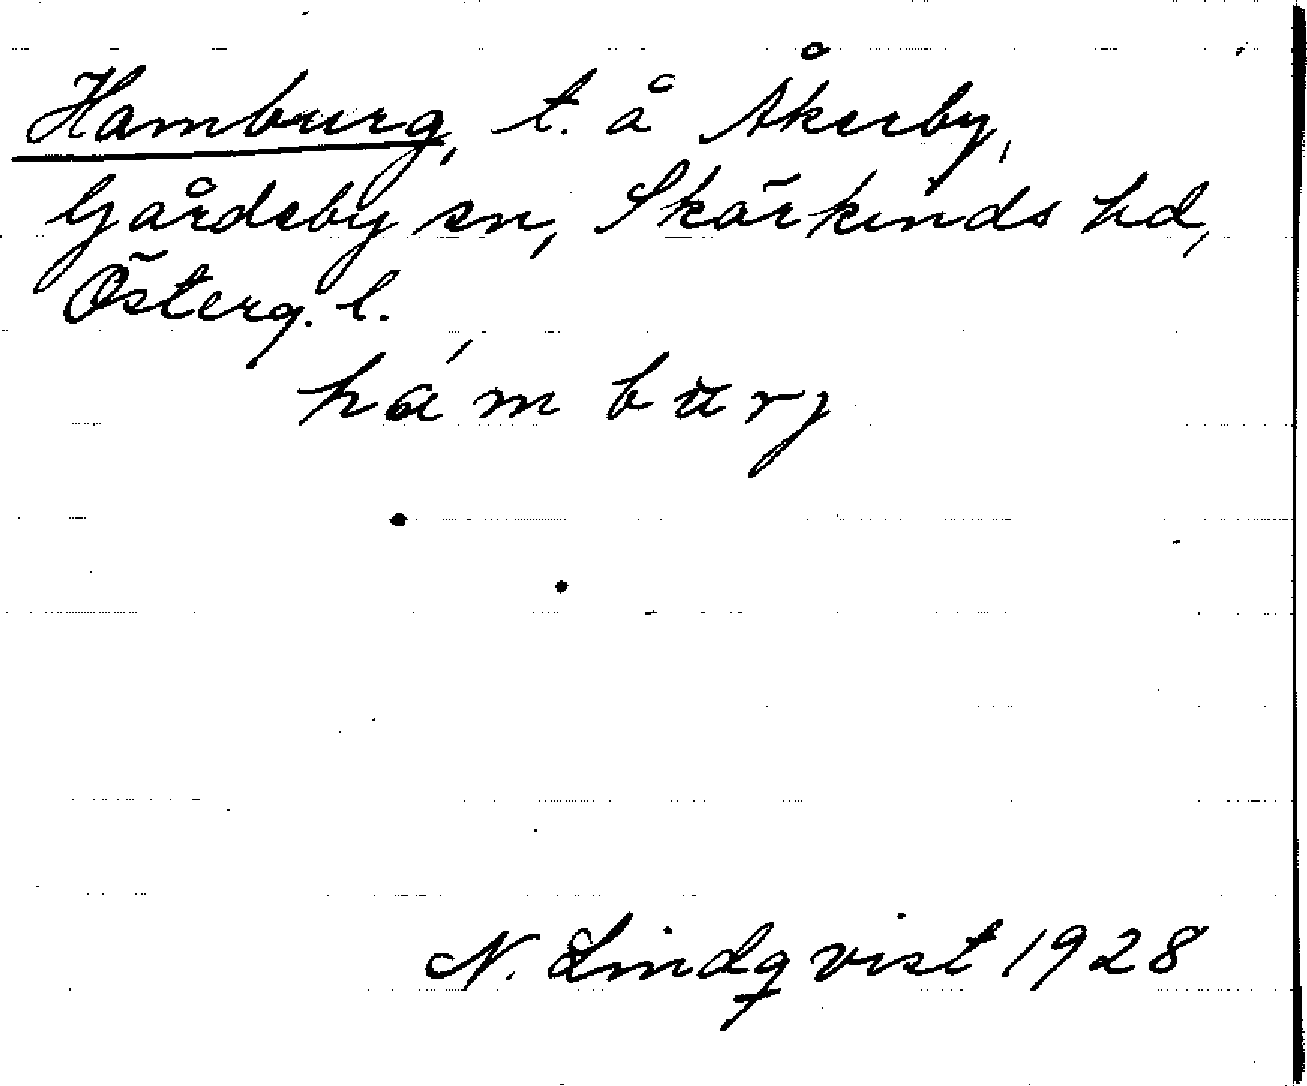 Hamburg, t. å Åkerby,
Gårdeby sn, Skärkinds hd,
Österg. l.
hámburj
N. Lindqvist 1928